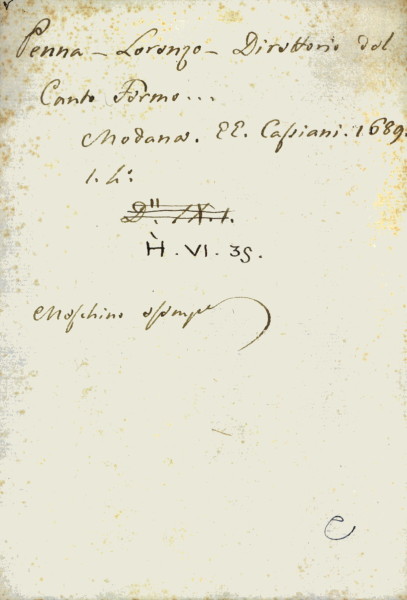 Penna - Lorenzo - Direttorio del
Canto Fermo...
Modena. EE. Cassiani. 1689.
1. h:
D". IX.1.
H. VI. 35.
Meschino esemp
e